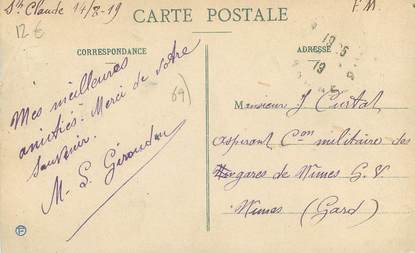 Ste Claude 14/8-19
CARTE POSTALE
F. M.
12 €
CORRESPONDANCE
ADRESSE
Mes meilleures
amitiés. Merci de votre
souvenir.
M. L. Giroudon
69
Monsieur J Curtat
aspirant Con militaire des
gares de Nimes G. V.
Nimes (Gard)